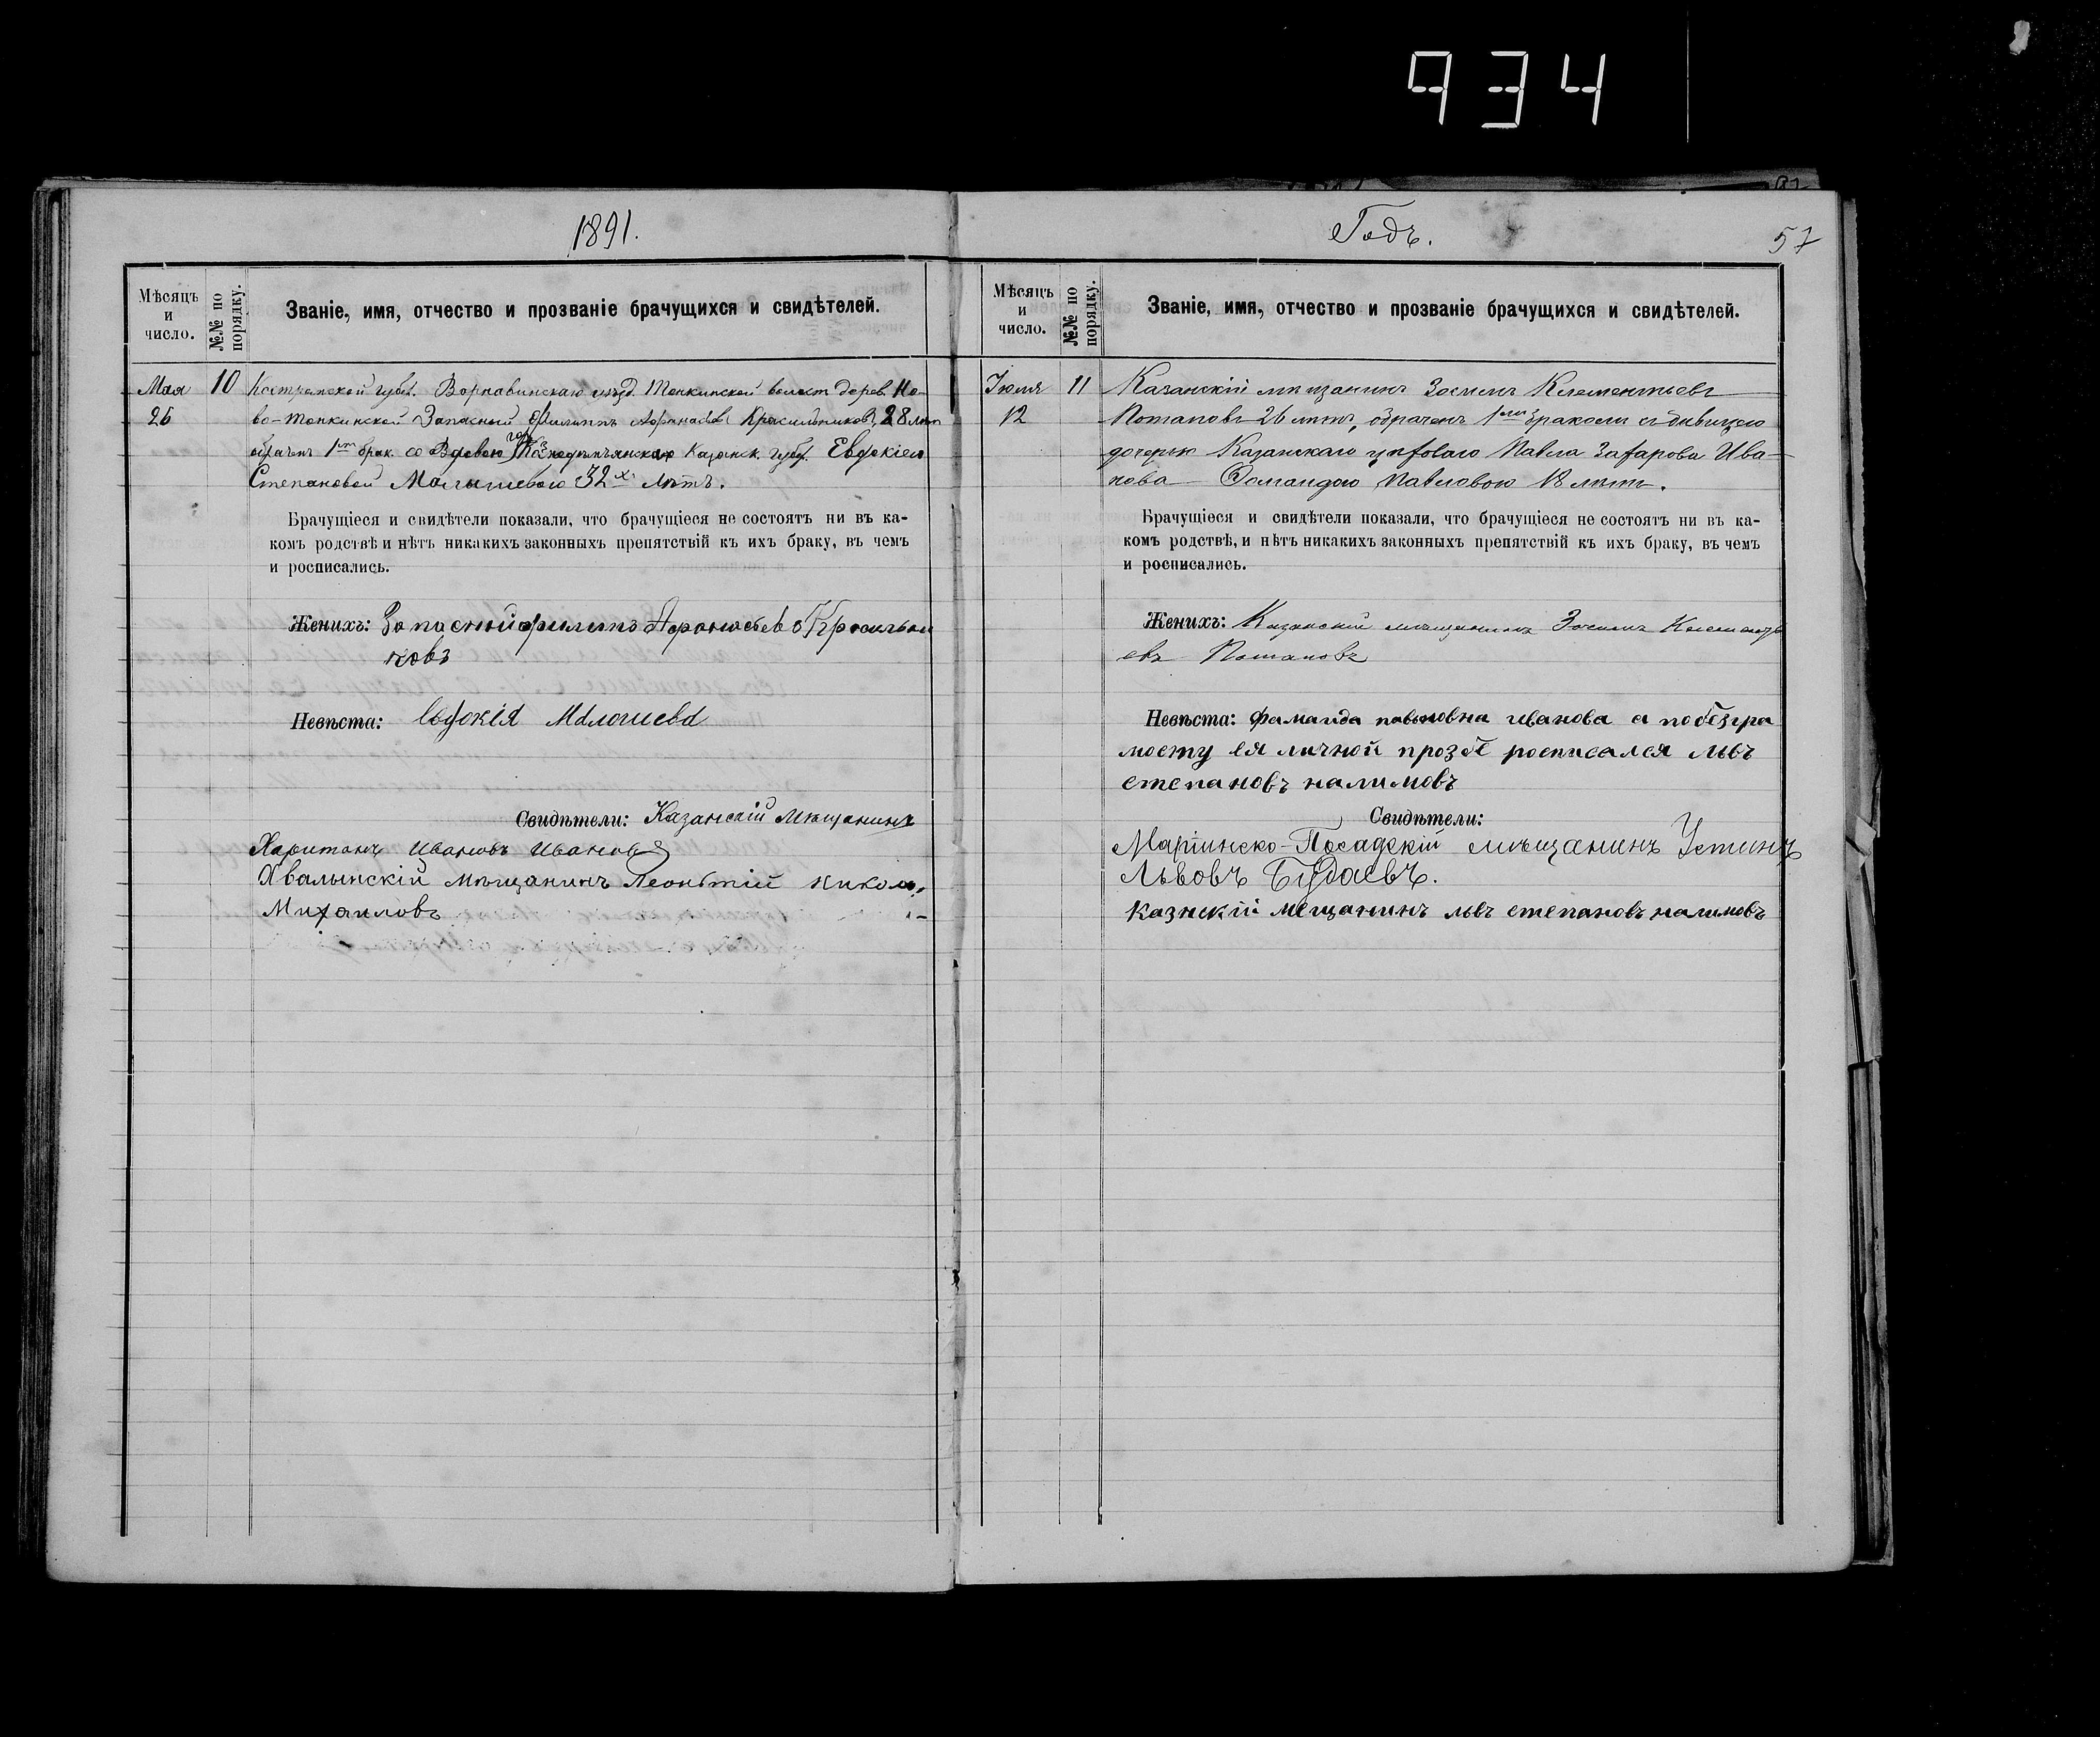 934
1891.
Мѣсяцъ и число.
№№ по порядку.
Званіе, имя, отчество и прозваніе брачущихся и свидѣтелей.
Мая 10 Костромской губ. Варнавинскаго уѣзд. Тонкинской волост. дерев. Но-
26 во-Тонкинской Запасный Филиппъ Афонасьев Красильников, 28 лѣт
1м брак. со Вдовою Казанск. губ. Евдокіею
Степановой Малышевою 32х лѣтъ.
Брачущіеся и свидѣтели показали, что брачущіеся не состоятъ ни въ ка-
комъ родствѣ и нѣтъ никакихъ законныхъ препятствій къ ихъ браку, въ чемъ
и росписались.
Женихъ: Запасной филипъ Афонасьевъ Красильни
ковъ
Невѣста: Евдокія Малошева
Свидѣтели: Казанскій Мѣщанинъ
Харитонъ Ивановъ Ивановъ
Хвалынскій мѣщанинъ Леонътій никола,
Михаиловъ
Годъ.
57
Мѣсяцъ и число.
№№ по порядку.
Званіе, имя, отчество и прозваніе брачущихся и свидѣтелей.
Іюля 11 Казанскій мѣщанинъ Зосимъ Клементьевъ
12 Потаповъ 26 лѣтъ, 1мъ бракомъ съ дѣвицею
дочерью Казанскаго Павла Захарова Ива-
нова Фомаидою Павловою 18 лѣтъ.
Брачущіеся и свидѣтели показали, что брачущіеся не состоятъ ни въ ка-
комъ родствѣ, и нѣтъ никакихъ законныхъ препятствій къ ихъ браку, въ чемъ
и росписались.
Женихъ: Казанскій мѣщанинъ Зосимъ
евъ Потаповъ
Невѣста: фамаида павловна иванова а побезгра
моству ея личной прозбе росписался львъ
степановъ налимовъ
Свидѣтели:
Маріинско-Посадскій мѣщанинъ Устинъ
Львовъ Будаевъ.
казнскій мещанинъ львъ степановъ налимовъ